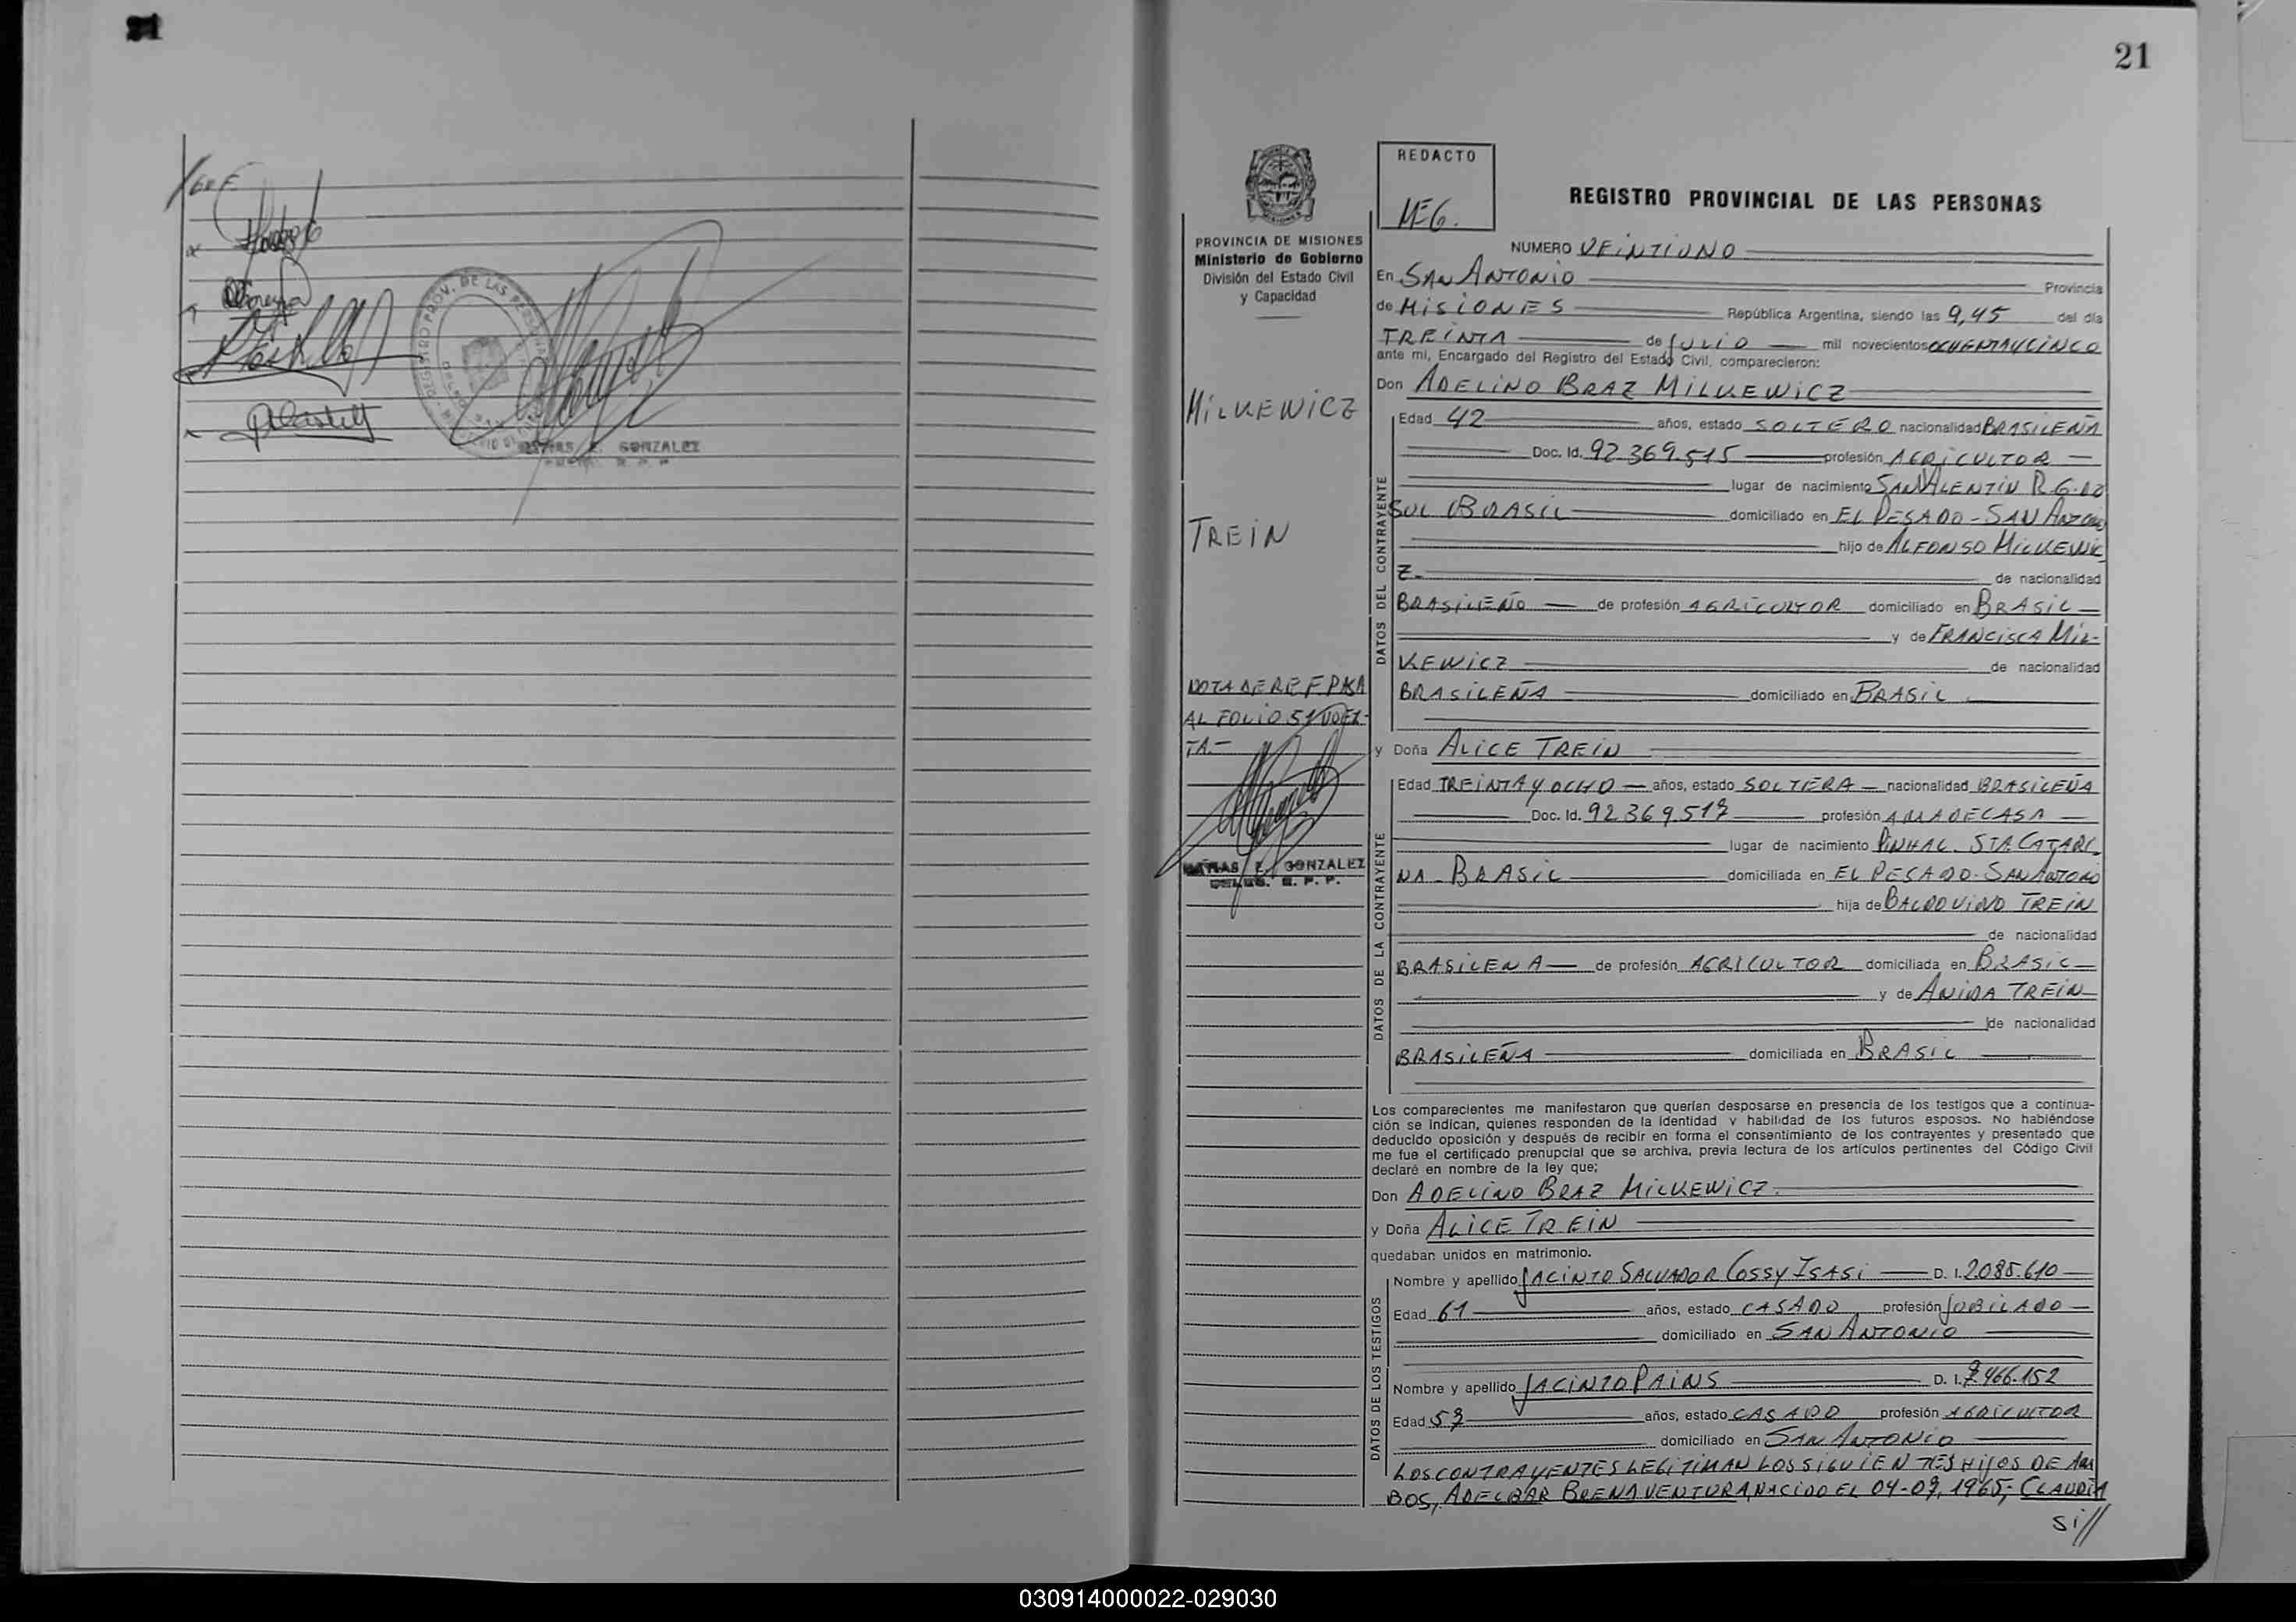 21
REGISTRO PROV. DE LAS PERSONAS
E. GONZALEZ
21
REDACTO
MEG.
REGISTRO PROVINCIAL DE LAS PERSONAS
PROVINCIA DE MISIONES
Ministerio de Gobierno
División del Estado Civil
y Capacidad
MILKEWICZ
TREIN
NOTA DE REF. PASA
AL FOLIO 51 VUEL-
TA.-
MATIAS E. GONZALEZ
DELEG. R. P. P.
NUMERO VEINTIUNO
En SAN ANTONIO Provincia
de MISIONES República Argentina, siendo las 9,45 del día
TREINTA de JULIO mil novecientos OCHENTA Y CINCO
ante mi, Encargado del Registro del Estado Civil, comparecieron:
Don ADELINO BRAZ MILKEWICZ
DATOS DEL CONTRAYENTE
Edad 42 años, estado SOLTERO nacionalidad BRASILEÑA
Doc. Id. 92.369.515 profesión AGRICULTOR
lugar de nacimiento SAN VALENTIN R.G. DO
SUL BRASIL domiciliado en EL PESADO - SAN ANTONIO
hijo de ALFONSO MILKEWIC
Z- de nacionalidad
BRASILEÑO de profesión AGRICULTOR domiciliado en BRASIL
y de FRANCISCA MIL-
KEWICZ de nacionalidad
BRASILEÑA domiciliado en BRASIL
y Doña ALICE TREIN
DATOS DE LA CONTRAYENTE
Edad TREINTA Y OCHO años, estado SOLTERA nacionalidad BRASILEÑA
Doc. Id. 92.369.517 profesión AMA DE CASA
lugar de nacimiento PINHAL. STA CATARI
NA - BRASIL domiciliada en EL PESADO - SAN ANTONIO
hija de BALDOVINO TREIN
de nacionalidad
BRASILENA de profesión AGRICULTOR domiciliada en BRASIL
y de ANIDA TREIN
de nacionalidad
BRASILEÑA domiciliada en BRASIL
Los comparecientes me manifestaron que querían desposarse en presencia de los testigos que a continua-
ción se indican, quienes responden de la identidad y habilidad de los futuros esposos. No habiéndose
deducido oposición y después de recibir en forma el consentimiento de los contrayentes y presentado que
me fue el certificado prenupcial que se archiva, previa lectura de los artículos pertinentes del Código Civil
declaré en nombre de la ley que;
Don ADELINO BRAZ MILKEWICZ.
y Doña ALICE TREIN
quedaban unidos en matrimonio.
DATOS DE LOS TESTIGOS
Nombre y apellido JACINTO SALVADOR COSSY ISASI D. I. 2.085.610
Edad 61 años, estado CASADO profesión JUBILADO
domiciliado en SAN ANTONIO
Nombre y apellido JACINTO PAINS D. I. 7.466.152
Edad 57 años, estado CASADO profesión AGRICULTOR
domiciliado en SAN ANTONIO
LOS CONTRAYENTES LEGITIMAN LOS SIGUIENTES HIJOS DE AM
BOS, ADELBAR BUENAVENTURA, NACIDO EL 04-07, 1965,- CLAUDIA
si//
030914000022-029030